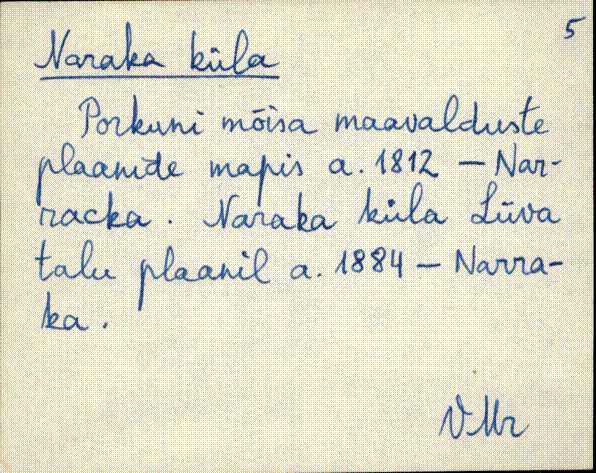 5
Naraka küla
Porkuni mõisa maavalduste
plaanide mapis a. 1812 — Nar-
racka. Naraka küla Liiva
talu plaanil a. 1884 — Narra-
ka.
VMr